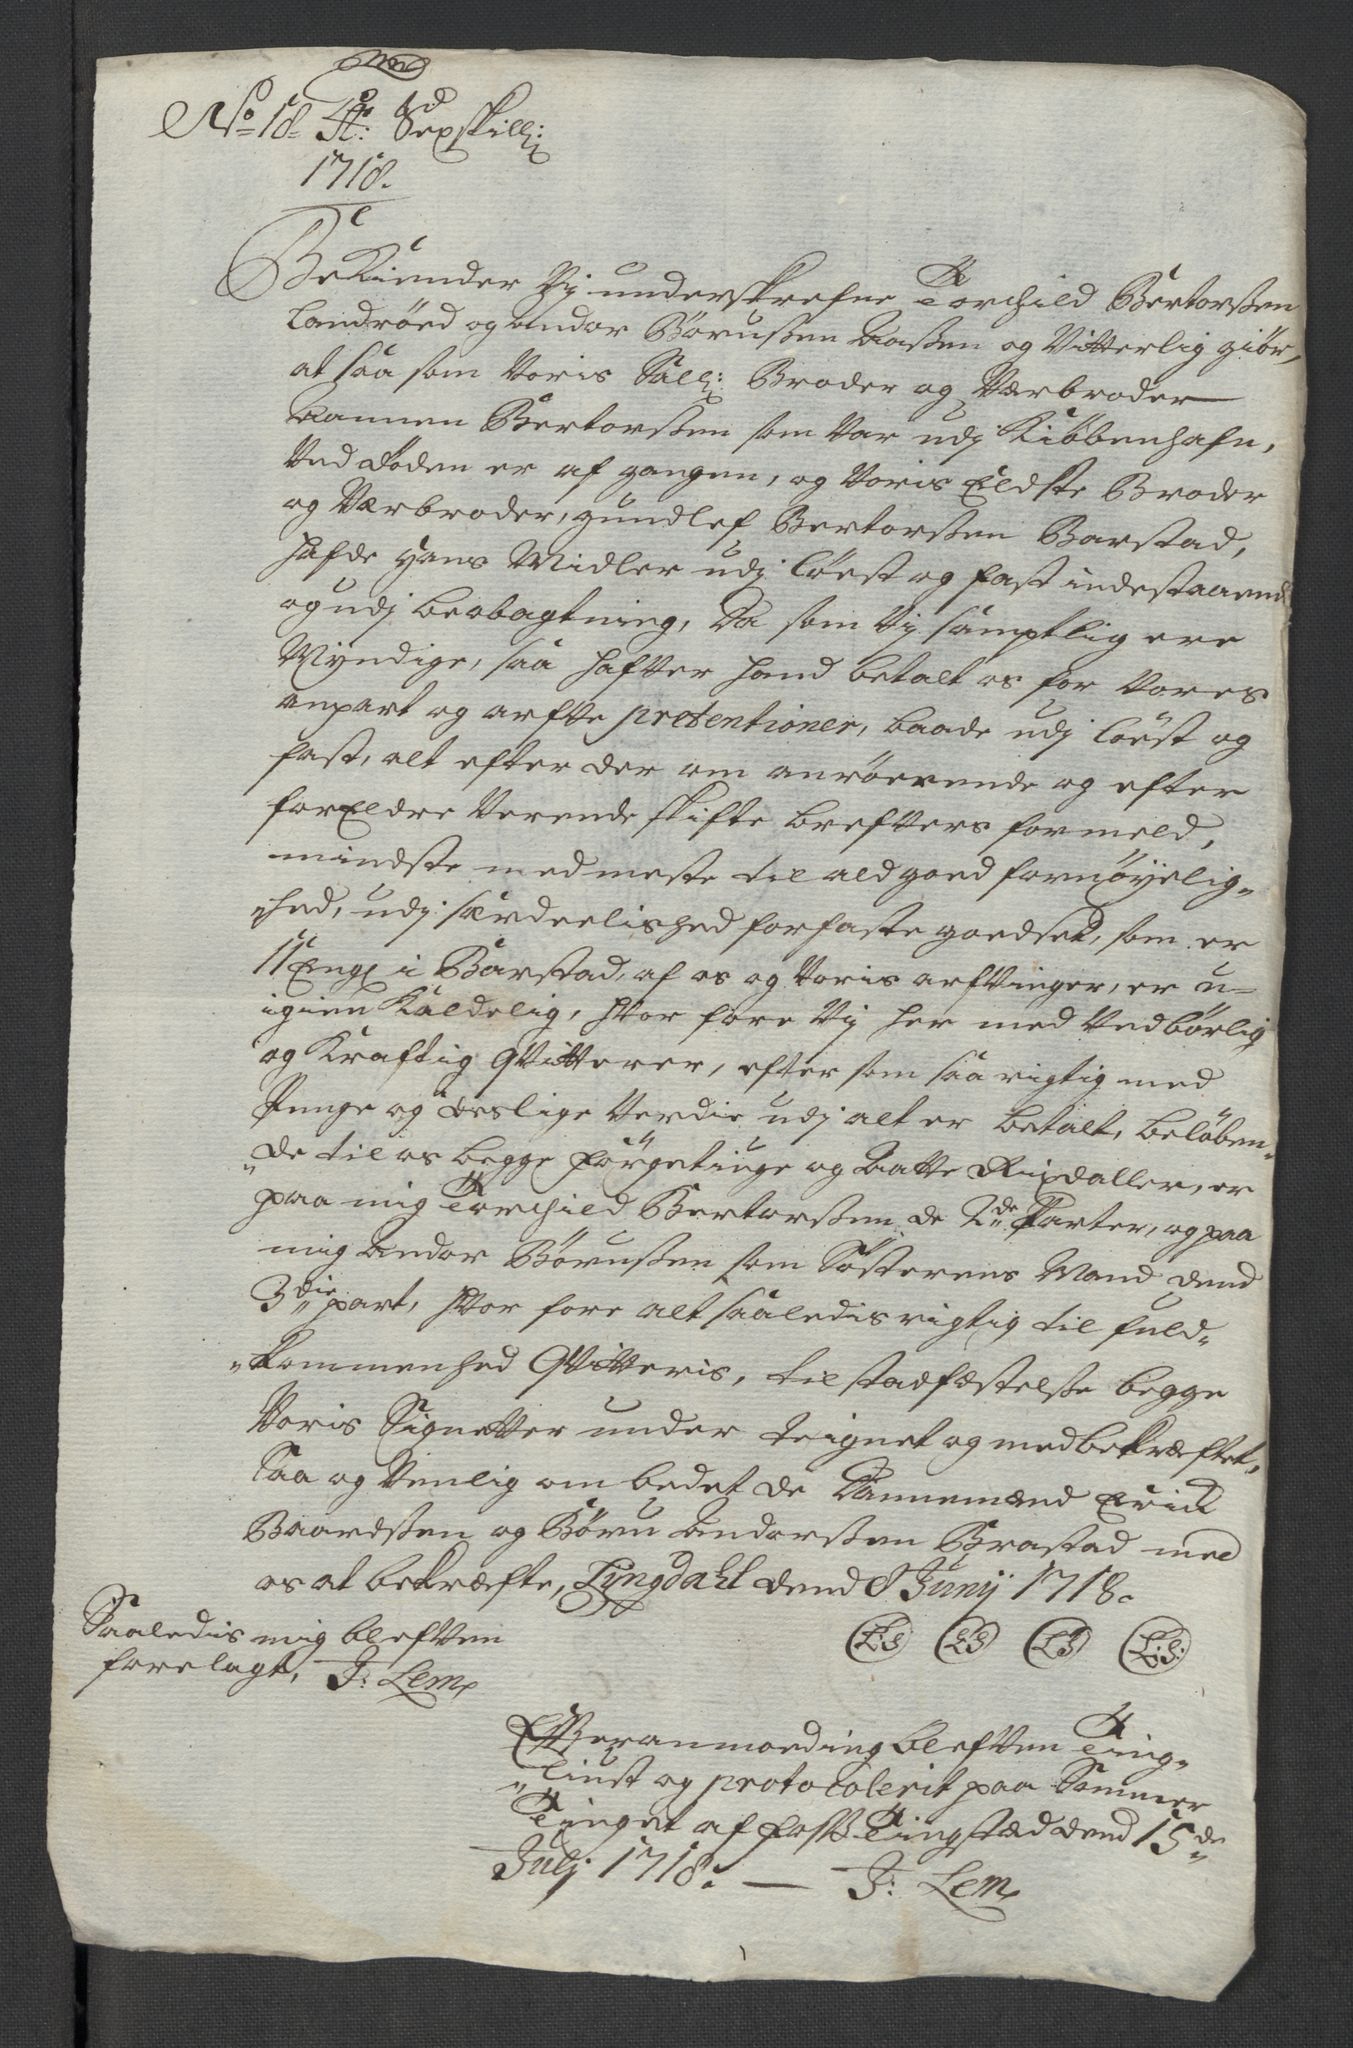 No 18 St: Sexskill:
1718.
Bekiender Vj underskrefne Torchild Bertorsen
Landröed og Andor Börusen Aasen og Vitterlig giör,
at saa som Voris Sall: Broder og Værbroder
Aannen Bertorsen som var udj Kiöbenhafn,
Ved döden er af gangen, og Voris Eldste Broder
og Værbroder, gundlef Bertorsen Barstad,
hafde hans Midler udj löest og fast indestaaend
og udj beobagtning, Da som Vj samptlig ere
Myndige, saa hafver hand betalt os for Vores
anpart og arfve prætentioner, baade udj löest og
fast, alt efter der om anröerende og efter
forEldre Verende skifte brefvers formeld,
mindste med meste til ald goed fornöyelig„
„hed, udj særdeelished for faste goedset, som er
11 Eng: i Barstad, af os og Voris arfvinger, er u-
igien Kaldelig, hvor fore Vj her med Vedbörlig
og Kraftig qvitterer, efter som saa rigtig med
Penge og deslige Verdie udj alt er betalt, belöben„
„de til os begge förgetiuge og Aatte Rixdaller, er
paa mig Torchild Bertorsen de 2de Parter, og paa
mig Andor Börusen som Sösterens Mand dend
3die part, hvor fore alt saaledis rigtig til fuld„
„kommenhed qvitteris, til stadfæstelse begge
Voris Signetter under teignet og med bekræftet,
Saa og Venlig om bedet de Dannemænd Erick
Baardsen og Böru Andorsen Brastad med
os at bekræfte, Lyngdahl dend 8 Junij 1718.
L:S L:S L:S L:S:
Saaledis mig blefven
forelagt, J: Lem
Efter anmoeding blefven Ting„
„liust og protocolerit paa Sommer
Tinget af Foss Tingstæd dend 15de
Julj 1718. — J: Lem